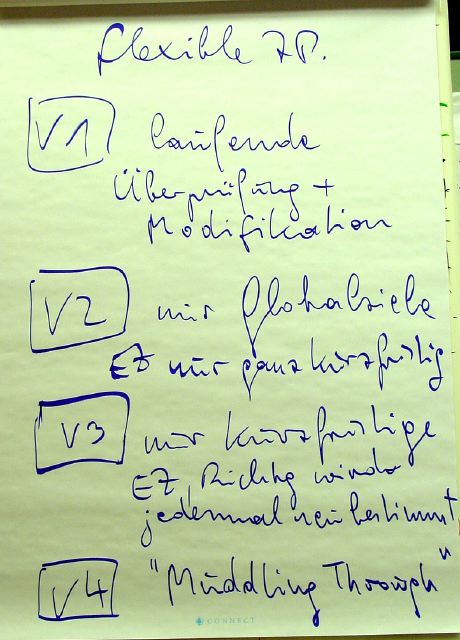 flexible ZP.
V1 laufende
Überprüfung +
Modifikation
V2 nur Globalziele
EZ nur ganz kurzfristig
V3 nur kurzfristige
EZ, Richtg wird
jedesmal neu bestimmt
V4 "Muddling Through"
CONNECT